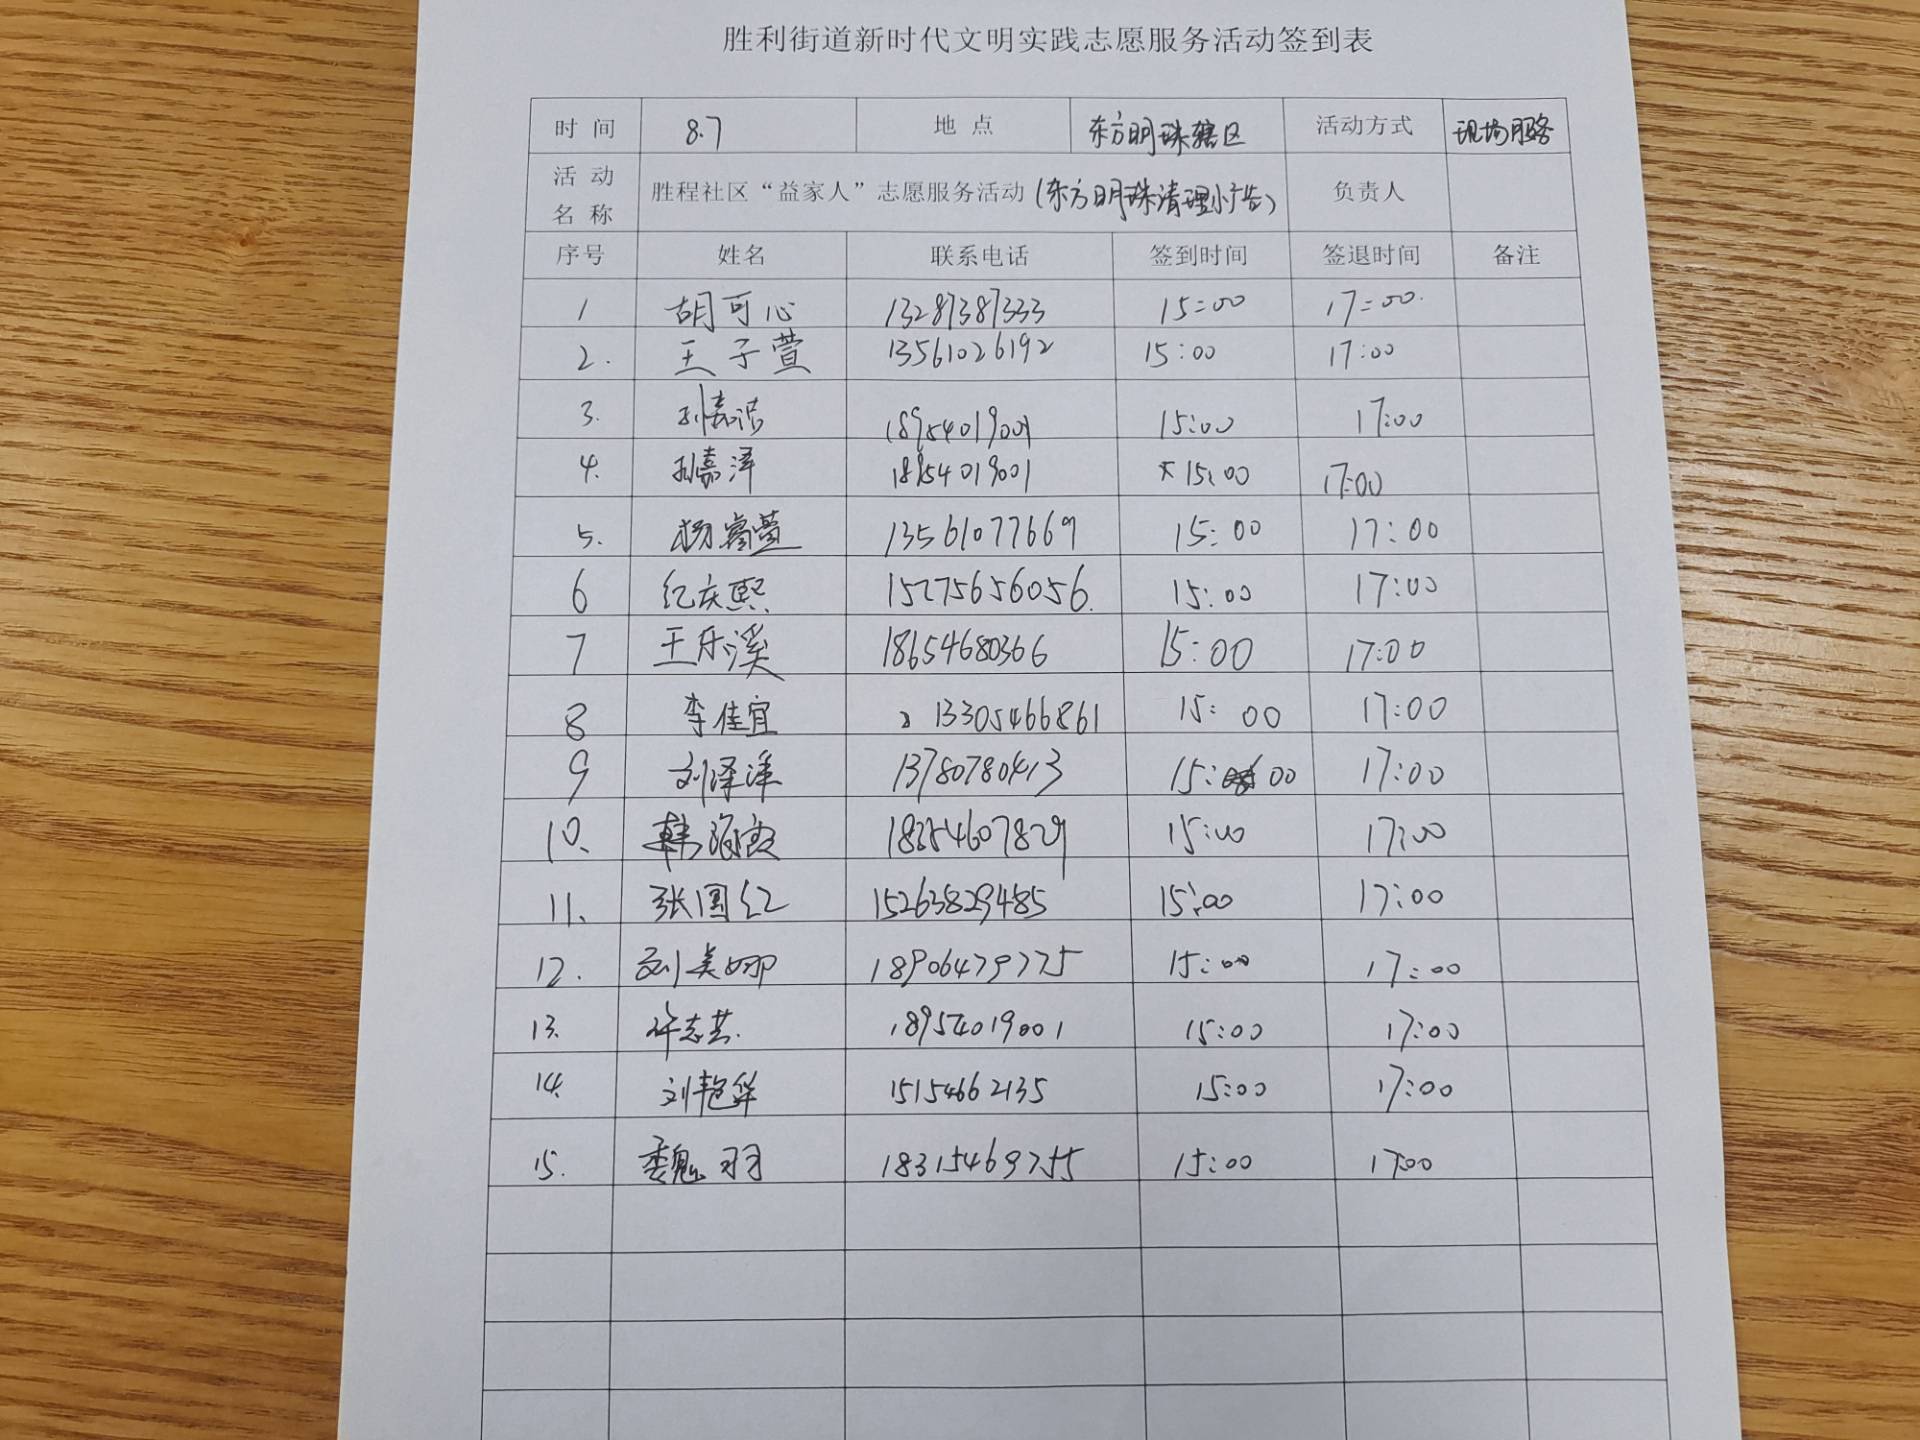 胜利街道新时代文明实践志愿服务活动签到表
时间 8.7 地点 东方明珠辖区 活动方式 现场服务
活动名称 胜程社区“益家人”志愿服务活动(东方明珠清理小广告) 负责人
序号 姓名 联系电话 签到时间 签退时间 备注
1 胡可心 13287387333 15:00 17:00
2. 王子萱 13561026192 15:00 17:00
3. 孙嘉浩 18954019001 15:00 17:00
4. 孙嘉泽 18954019001 15:00 17:00
5. 杨睿萱 13561077669 15:00 17:00
6 纪庆熙 15275656056 15:00 17:00
7 王乐溪 18654680366 15:00 17:00
8 李佳宜 13305466861 15:00 17:00
9 刘泽洋 13780780413 15:00 17:00
10. 韩海霞 18254607829 15:00 17:00
11. 张国红 15263829485 15:00 17:00
12. 刘美娜 18906479775 15:00 17:00
13. 许志芸 18954019001 15:00 17:00
14. 刘艳华 15154662135 15:00 17:00
15. 魏羽 18315469755 15:00 17:00